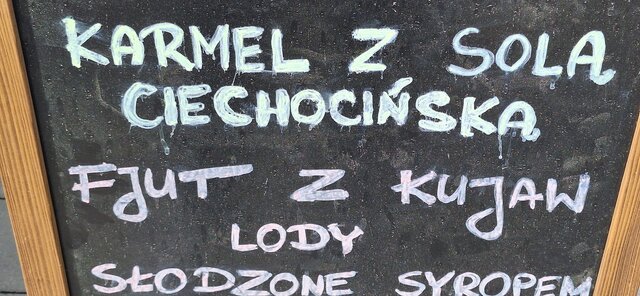 KARMEL Z SOLĄ
CIECHOCIŃSKĄ
FJUT Z KUJAW
LODY
SŁODZONE SYROPEM